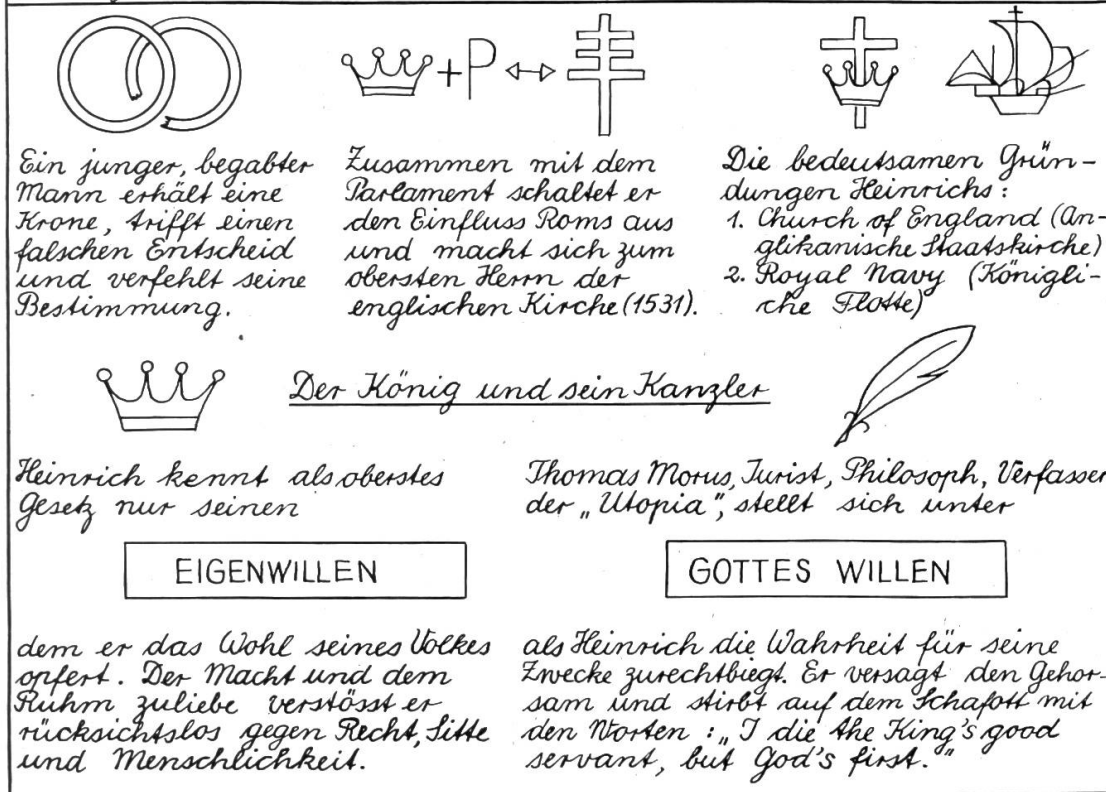 +P
Ein junger, begabter
Mann erhält eine
Krone, trifft einen
falschen Entscheid
und verfehlt seine
Bestimmung.
Zusammen mit dem
Parlament schaltet er
den Einfluss Roms aus
und macht sich zum
obersten Herrn der
englischen Kirche (1531).
Die bedeutsamen Grün-
dungen Heinrichs:
1. Church of England (An-
glikanische Staatskirche)
2. Royal Navy (Königli-
che Flotte)
Der König und sein Kanzler
Heinrich kennt als oberstes
Gesetz nur seinen
EIGENWILLEN
dem er das Wohl seines Volkes
opfert. Der Macht und dem
Ruhm zuliebe verstösst er
rücksichtslos gegen Recht, Sitte
und Menschlichkeit.
Thomas Morus, Jurist, Philosoph, Verfasser
der „Utopia“, stellt sich unter
GOTTES WILLEN
als Heinrich die Wahrheit für seine
Zwecke zurechtbiegt. Er versagt den Gehor-
sam und stirbt auf dem Schafott mit
den Worten: „I die the King's good
servant, but God's first.“